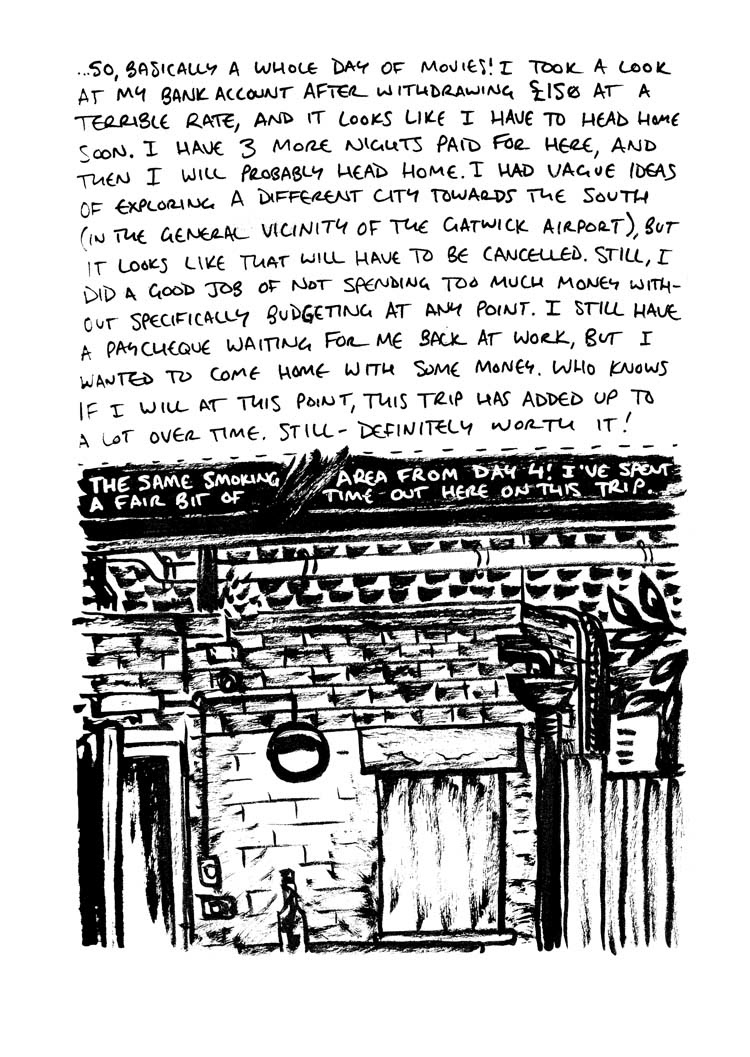 ...SO, BASICALLY A WHOLE DAY OF MOVIES! I TOOK A LOOK
AT MY BANK ACCOUNT AFTER WITHDRAWING £150 AT A
TERRIBLE RATE, AND IT LOOKS LIKE I HAVE TO HEAD HOME
SOON. I HAVE 3 MORE NIGHTS PAID FOR HERE, AND
THEN I WILL PROBABLY HEAD HOME. I HAD VAGUE IDEAS
OF EXPLORING A DIFFERENT CITY TOWARDS THE SOUTH
(IN THE GENERAL VICINITY OF THE GATWICK AIRPORT), BUT
IT LOOKS LIKE THAT WILL HAVE TO BE CANCELLED. STILL, I
DID A GOOD JOB OF NOT SPENDING TOO MUCH MONEY WITH-
OUT SPECIFICALLY BUDGETING AT ANY POINT. I STILL HAVE
A PAYCHEQUE WAITING FOR ME BACK AT WORK, BUT I
WANTED TO COME HOME WITH SOME MONEY. WHO KNOWS
IF I WILL AT THIS POINT, THIS TRIP HAS ADDED UP TO
A LOT OVER TIME. STILL - DEFINITELY WORTH IT!
THE SAME SMOKING AREA FROM DAY 4! I'VE SPENT
A FAIR BIT OF TIME OUT HERE ON THIS TRIP.